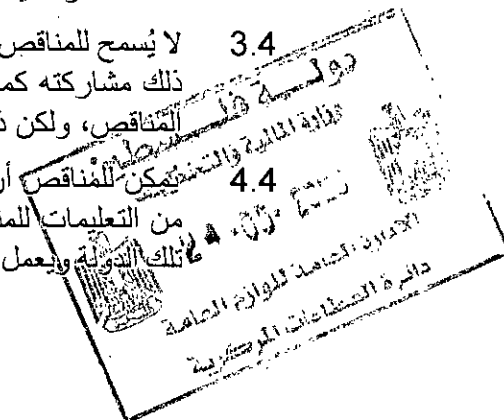 3.4 لا يُسمح للمناقص
ذلك مشاركته كم
المناقص، ولكن ذ
4.4 يمكن للمناقص أن
من التعليمات للمن
تلك الدولة ويعمل
دولة فلسطين
وزارة المالية والتخطيط
الادارة العامة للوازم العامة
دائرة العطاءات المركزية